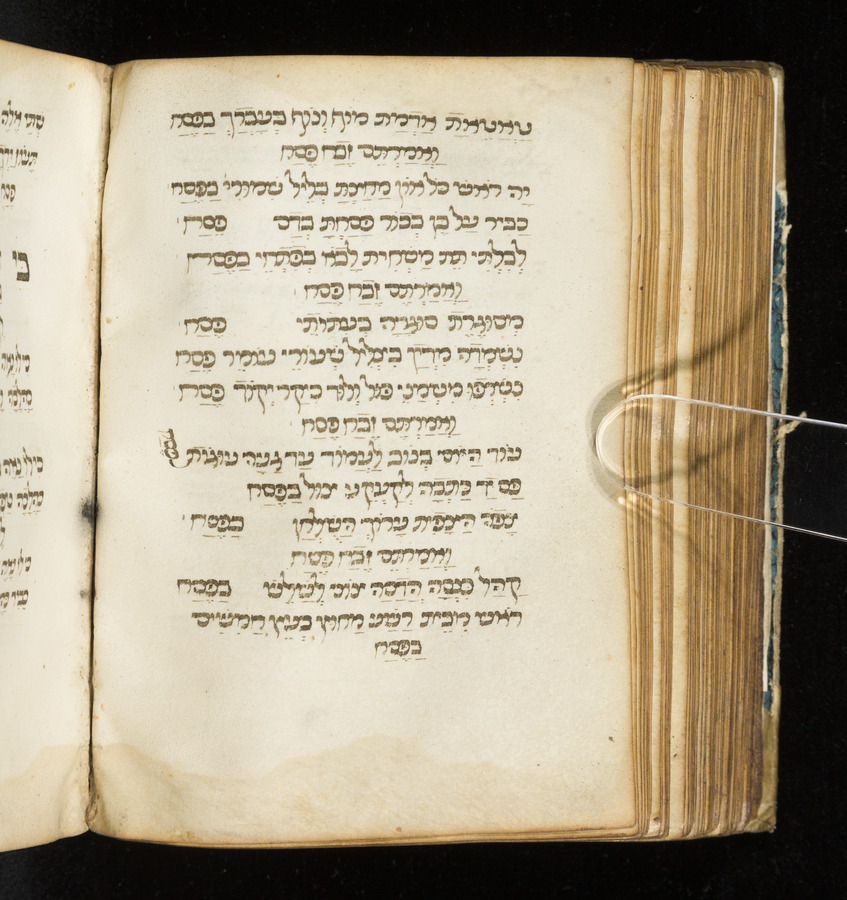 טאטאת אדמת מוף ונוף בעברך בפסח
ואמרתם זבח פסח
יה ראש כל און מחצת בליל שמורי בפסח
כביר על בן בכור פסחת בדם פסח
לבלתי תת משחית לבא בפתחי בפסח
ואמרתם זבח פסח
מסוגרת סוגרה בעתותי פסח
נשמדה מדין בצליל שעורי עומר פסח
נשרפו משמני פול ולוד ביקד יקוד פסח
ואמרתם זבח פסח
עוד היום בנוב לעמוד עד געה עונות פסח
פס יד כתבה לקעקע צול בפסח
צפה הצפית ערוך השלחן בפסח
ואמרתם זבח פסח
קהל כנסה הדסה צום לשלש בפסח
ראש מבית רשע מחצת בעץ חמשים
בפסח